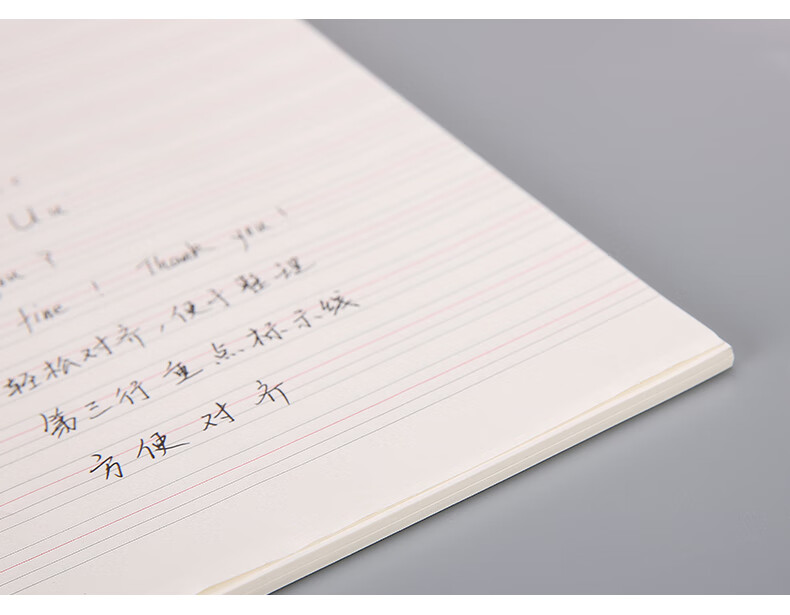 Uu
you?
fine! Thank you!
轻松对齐,便于整理
第三行重点标示线
方便对齐